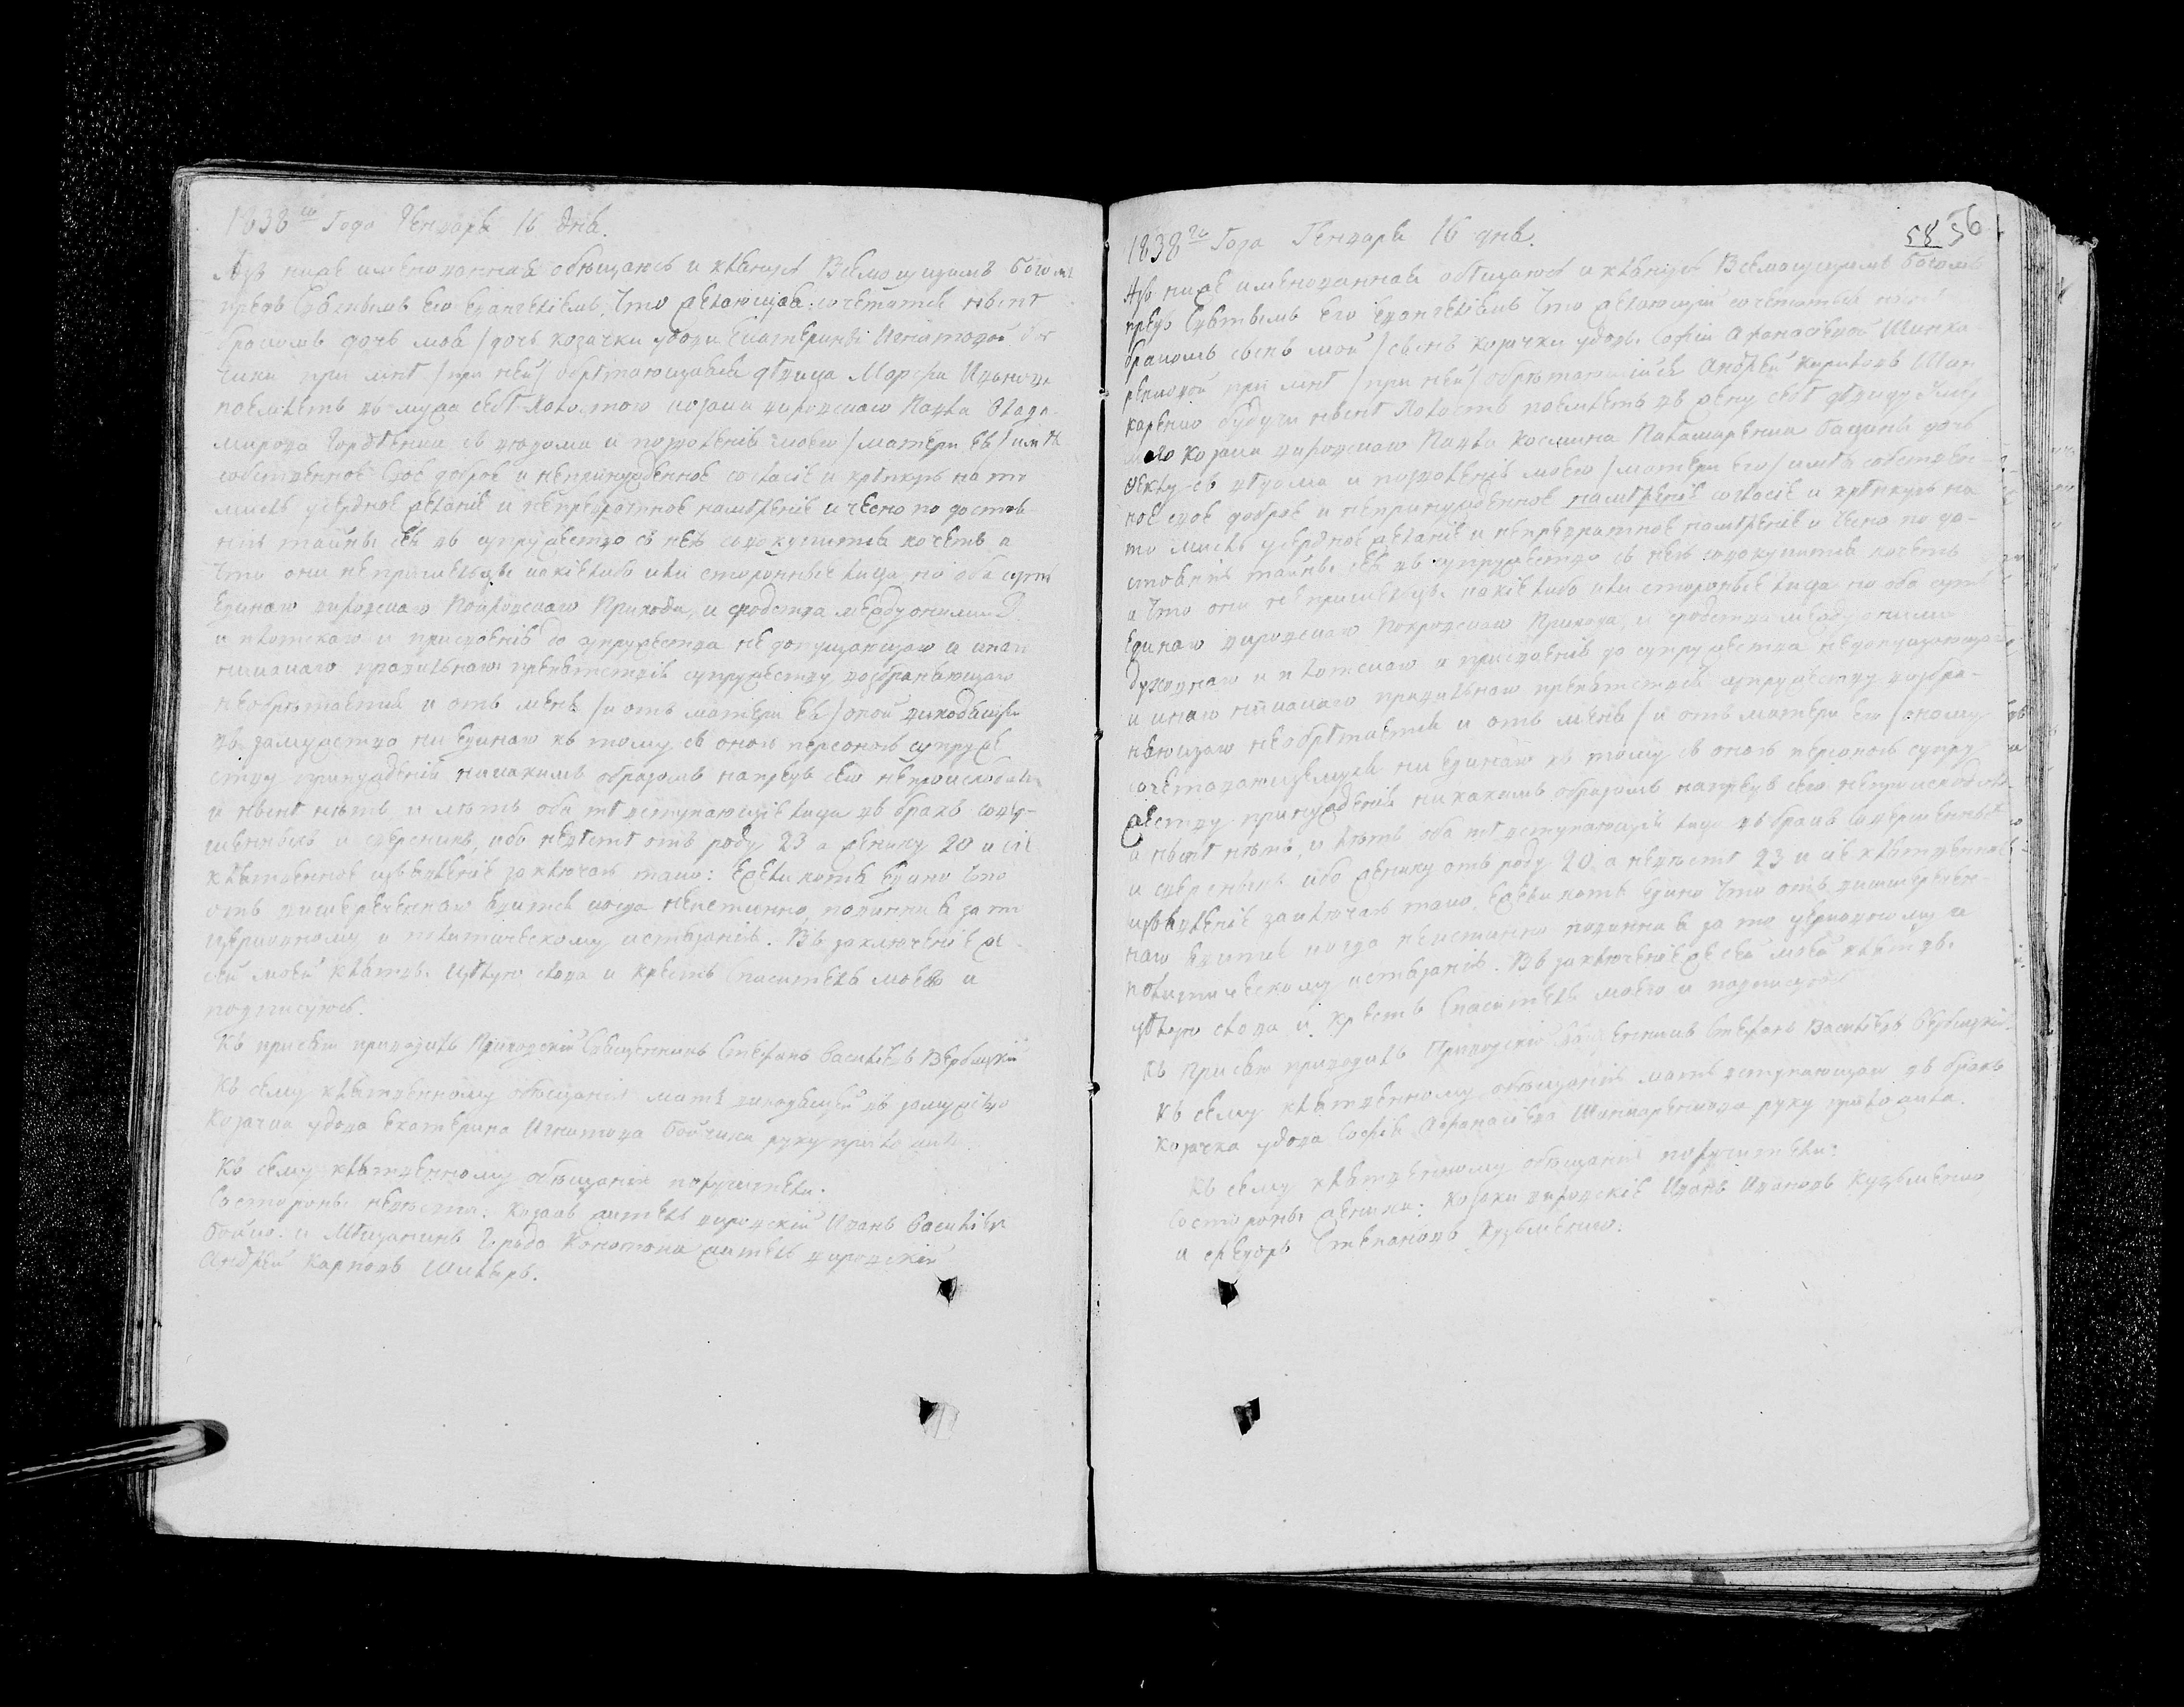 1838го Года Генваря 16 дня.
Азъ ниже именованная обѣщаюсь и клянусь Всемогущимъ Богомъ
предъ Святымъ Его Евангелиемъ, что желающая сочетатся нынѣ
бракомъ дочь моя /дочь козачки удови Екатерины Игнатовой
чики при мнѣ /при ней/ обрѣтающаяся дѣвица Марфа Иванова
поемлетъ въ мужа себѣ холостого козака вировскаго Павла Влади
мирова Гордѣенка съ вѣдома и позволенія моего /матери ея/ имѣя
собственное свое доброе и непринужденное согласіе и крѣпкую на то
мысль усердное желаніе и непревратное намѣреніе и чесно по достоя
нію тайны сея въ супружество съ нею совокупится хочетъ а
что они не пришельцы какіелибо или сторонные лица но оба суть
единаго вировскаго Покровскаго Прихода, и сродства между оними
и плотскаго и присвоенія до супружества не допущающаго и инаго
никакаго правильнаго препятствія супружеству возбраняющаго
необрѣтается и отъ мене /и отъ матери ея/ оной виходящей
въ замужство ни единаго къ тому съ оною персоною супруже
ству принужденія никакимъ образомъ напредъ сего непроисходило
и нынѣ нѣтъ и лѣтъ оба тѣ вступающіе лица въ бракъ совер-
шенныхъ и сверсныхъ, ибо невѣстѣ отъ роду 23 а жениху 20 и сіе
клятвенное извѣщеніе заключаю тако: ежели хотя едино что
отъ вишереченнаго явится когда неистинно, повинна я за то
церковному и политическому истязанію. Въ заключеніе же
сей моей клятвы цѣлую слова и крестъ Спасителя моего и
подписуюсь.
Къ присягѣ приводилъ Приходскій Священникъ Стефанъ Василіевъ Вербицкій
Къ сему клятвенному обѣщанію мать виходящей въ замужство
Козачка удова Екатерина Игнатова Бойчика руку приложила.
Къ сему клятвенному обѣщанію поручители:
Состороны невѣсты: Козакъ житель вировскій Иванъ Василіевъ
Бойко. и Мѣщанинъ Города Конотопа житель вировскій
Андрей Карповъ Шкляръ.
58 56
1838го Года Генваря 16 дня.
Азъ ниже именованная обѣщаюсь и клянусь Всемогущимъ Богомъ
предъ Святымъ Его Евангелиемъ что желающій сочетаться нынѣ
бракомъ сынъ мой /сынъ козачки удовы Софіи Афанасіевой Шинка-
ренковой при мнѣ /при ней/ обрѣтающійся Андрей Кириловъ Шин
каренко будучи нынѣ холостъ поемлетъ въ жену себѣ дѣвицу
козака вировскаго Павла Космина дочь
Ѳеклу съ вѣдома и позволенія моего /матери его/ имѣя собствен-
ное свое доброе и непринужденное намѣреніе согласіе и крѣпкую на
то мысль усердное желаніе и непревратное намѣреніе и чесно по до-
стоянію тайны сея въ супружество съ нею совокупится хочетъ
а что они не пришельцы какіелибо или сторонные лица но оба суть
единаго вировскаго Покровскаго Прихода, и сродства между ними
духовнаго и плотскаго и присвоенія до супружества недопущающаго
и инаго никакаго правильнаго препятствія супружеству возбра-
няющаго необрѣтается и отъ мене /и отъ матери его/ оному
сочетавающемуся ни единаго къ тому съ оною персоною супру
жеству принужденія никакимъ образомъ напредъ сего непроисходило
а нынѣ нѣтъ, и лѣтъ оба тѣ вступающіе лица въ бракъ совершенныхъ
и сверсныхъ ибо жениху отъ роду 20 а невѣстѣ 23 и сіе клятвенное
извѣщеніе заключаю тако, ежели хотя едино что отъ вишеречен-
наго явится когда неистинно повинна я за то церковному и
политическому истязанію. Въ заключеніе же сей моей клятвы
цѣлую слова и крестъ Спасителя моего и подписуюсь
Къ Присягѣ приводилъ Приходскій Священникъ Стефанъ Василіевъ Вербицкій
Къ сему клятвенному обѣщанію мать вступающаго въ бракъ
козачка удова Софія Афанасіева Шинкаренкова руку приложила.
Къ сему клятвенному обѣщанію поручители:
Состороны жениха: Козаки вировскіе Иванъ Ивановъ Кузьменко
и Федоръ Степановъ Кузьменко.